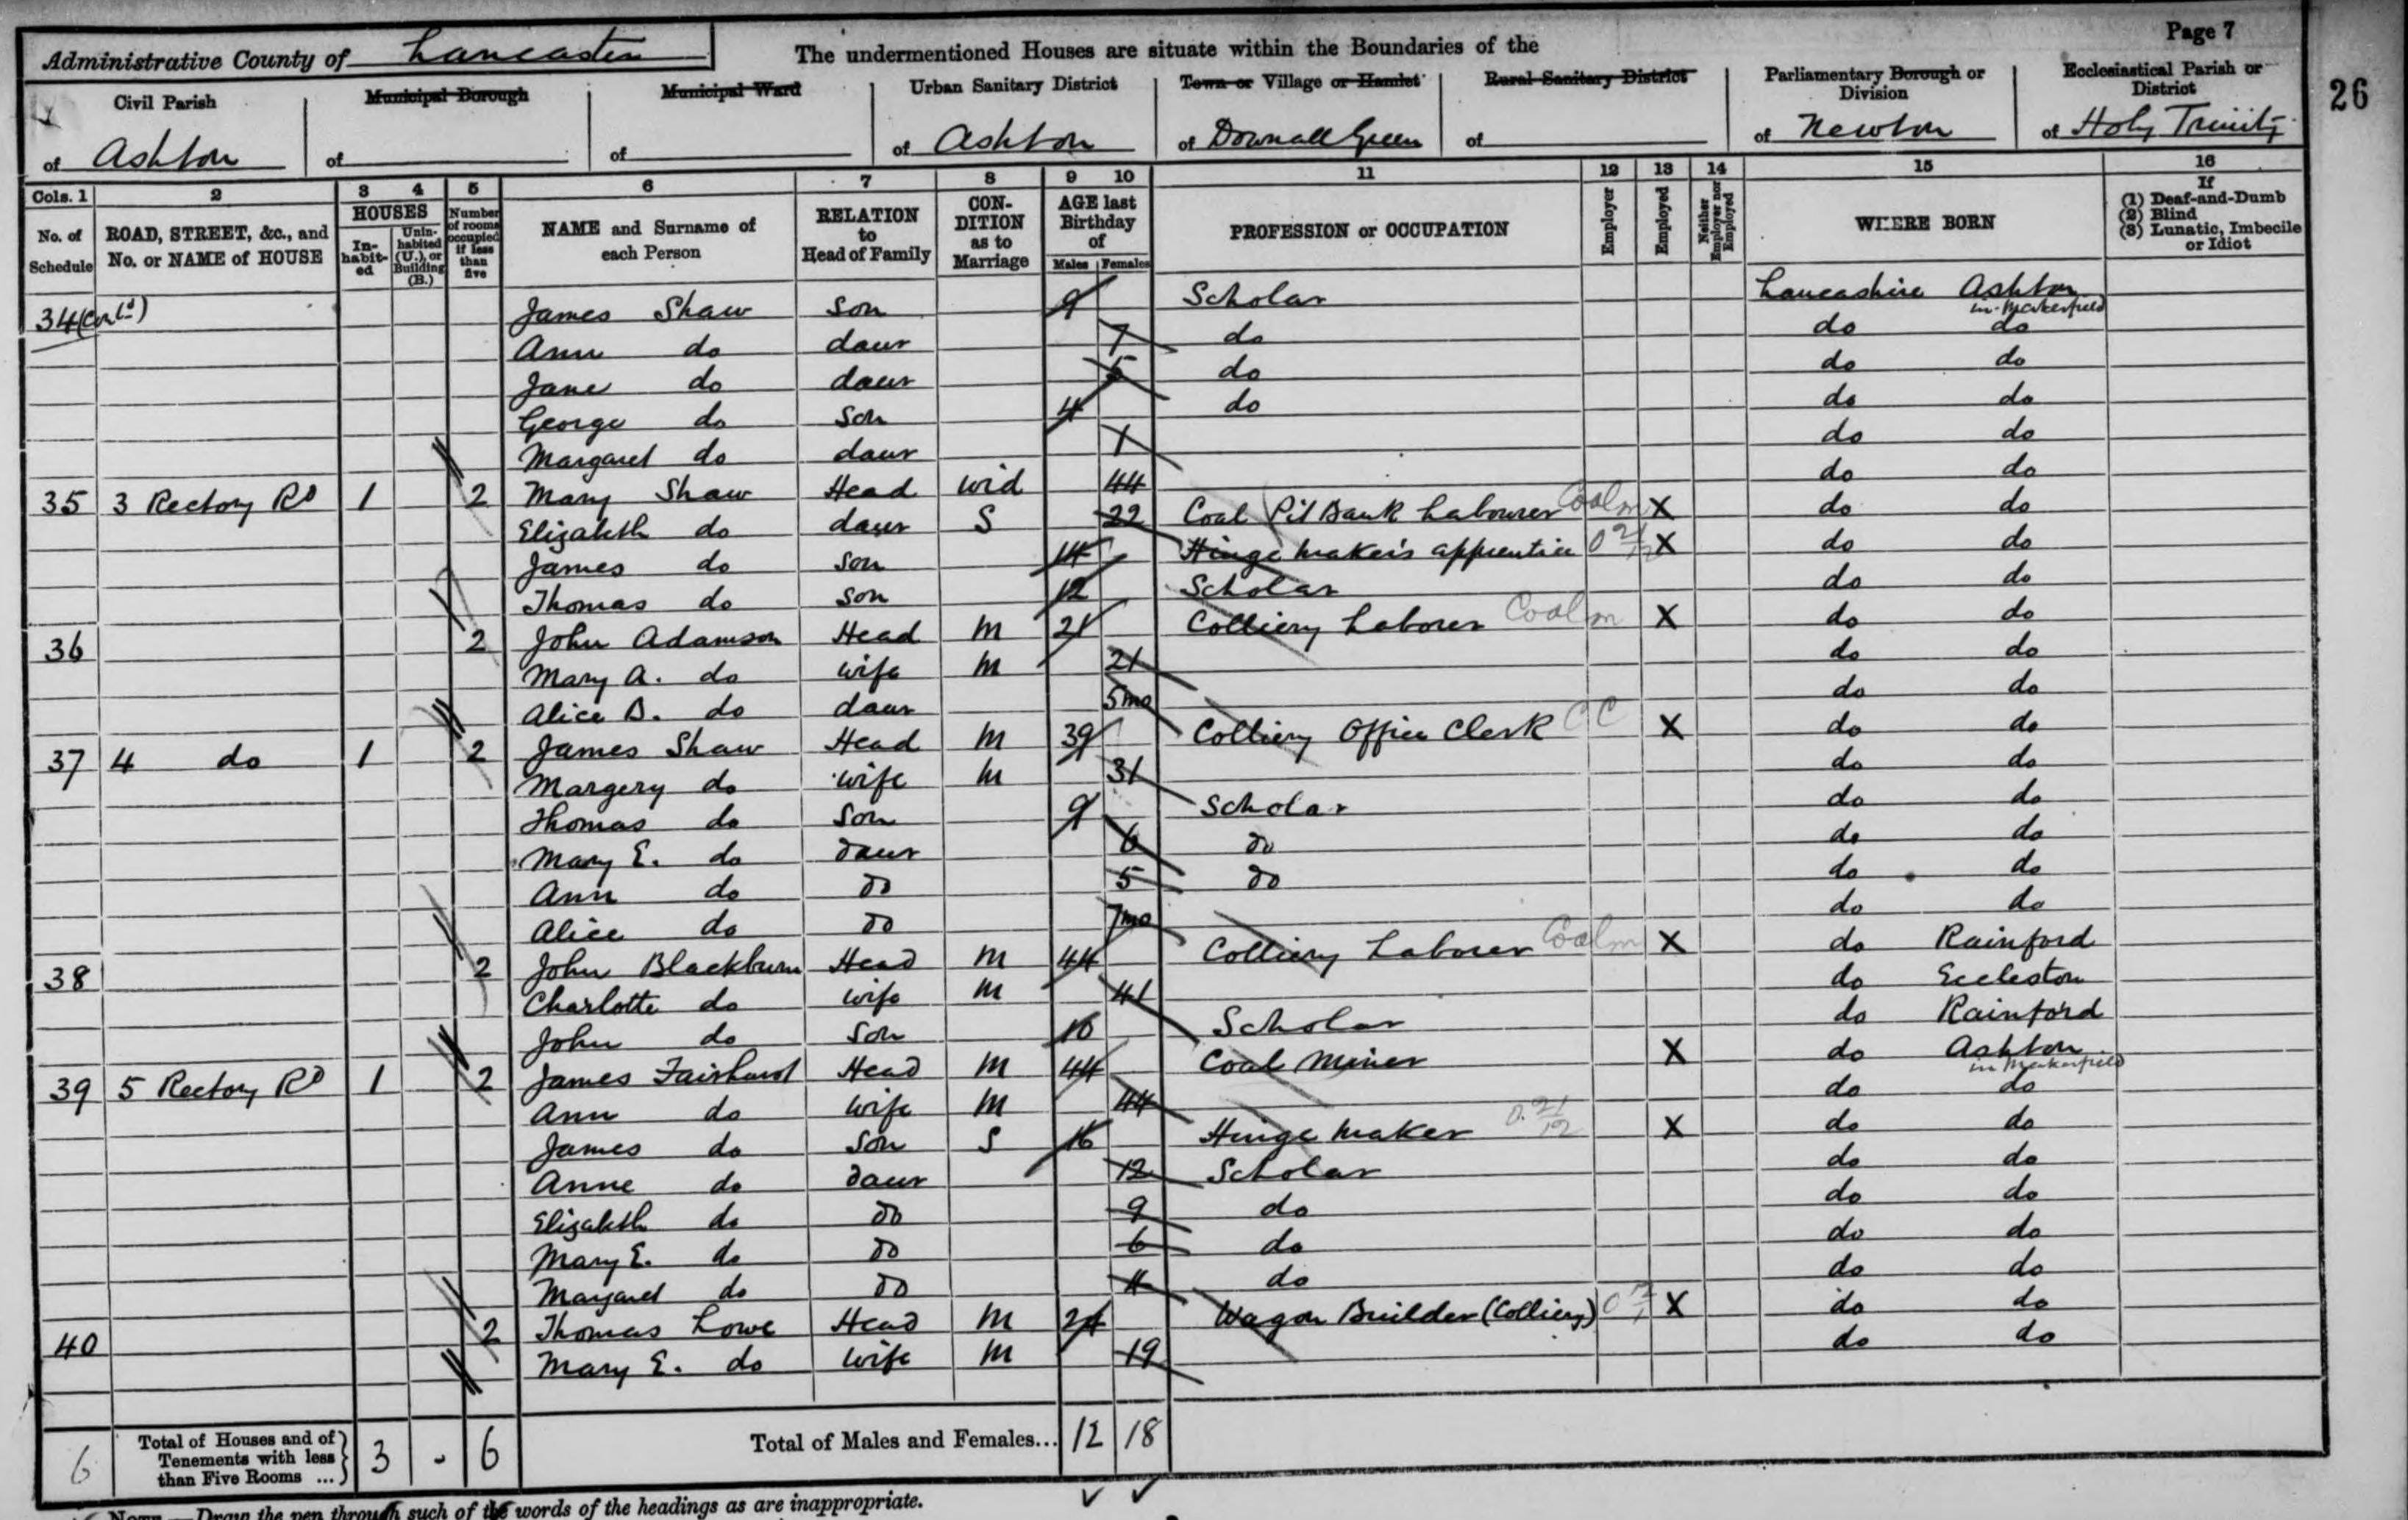 Page 7
Administrative County of Lancaster The undermentioned Houses are situate within the Boundaries of the
26
Civil Parish Municipal Borough Municipal Ward Urban Sanitary District Town or Village or Hamlet Rural Sanitary District Parliamentary Borough or Division Ecclesiastical Parish or District
of Ashton of of of Ashton of Downall Green of of Newton of Holy Trinity
Cols. 1 2 3 4 5 6 7 8 9 10 11 12 13 14 15 16
No. of Schedule ROAD, STREET, &c., and No. or NAME of HOUSE HOUSES In-habit-ed Unin-habited (U.), or Building (B.) Number of rooms occupied if less than five NAME and Surname of each Person RELATION to Head of Family CON-DITION as to Marriage AGE last Birthday of Males Females PROFESSION or OCCUPATION Employer Employed Neither Employer nor Employed WHERE BORN If (1) Deaf-and-Dumb (2) Blind (3) Lunatic, Imbecile or Idiot
34 (Con'd) James Shaw Son 9 Scholar Lancashire Ashton in Makerfield
Ann do daur 7 do do do
Jane do daur 5 do do do
George do Son 4 do do do
Margaret do daur 1 do do
35 3 Rectory Rd 1 2 Mary Shaw Head Wid 44 do do
Elizabeth do daur S 22 Coal Pit Bank Labourer Coalm X do do
James do Son 14 Hinge maker's apprentice 0 21/12 X do do
Thomas do Son 12 Scholar do do
36 2 John Adamson Head M 21 Colliery Laborer Coalm X do do
Mary A. do wife M 21 do do
Alice B. do daur 5mo do do
37 4 do 1 2 James Shaw Head M 39 Colliery Office Clerk CC X do do
Margery do wife M 31 do do
Thomas do Son 9 Scholar do do
Mary E. do daur 6 do do do
Ann do do 5 do do do
Alice do do 7mo do do
38 2 John Blackburn Head M 44 Colliery Laborer Coalm X do Rainford
Charlotte do wife M 41 do Eccleston
John do Son 10 Scholar do Rainford
39 5 Rectory Rd 1 2 James Fairhurst Head M 44 Coal Miner X do Ashton in Makerfield
Ann do wife M 44 do do
James do Son S 16 Hinge maker 0. 21/12 X do do
Anne do daur 12 Scholar do do
Elizabeth do do 9 do do do
Mary E. do do 6 do do do
Margaret do do 4 do do do
40 2 Thomas Lowe Head M 24 Wagon Builder (Colliery) X do do
Mary E. do wife M 19 do do
6 Total of Houses and of Tenements with less than Five Rooms ... 3 - 6 Total of Males and Females... 12 18
NOTE.—Draw the pen through such of the words of the headings as are inappropriate.